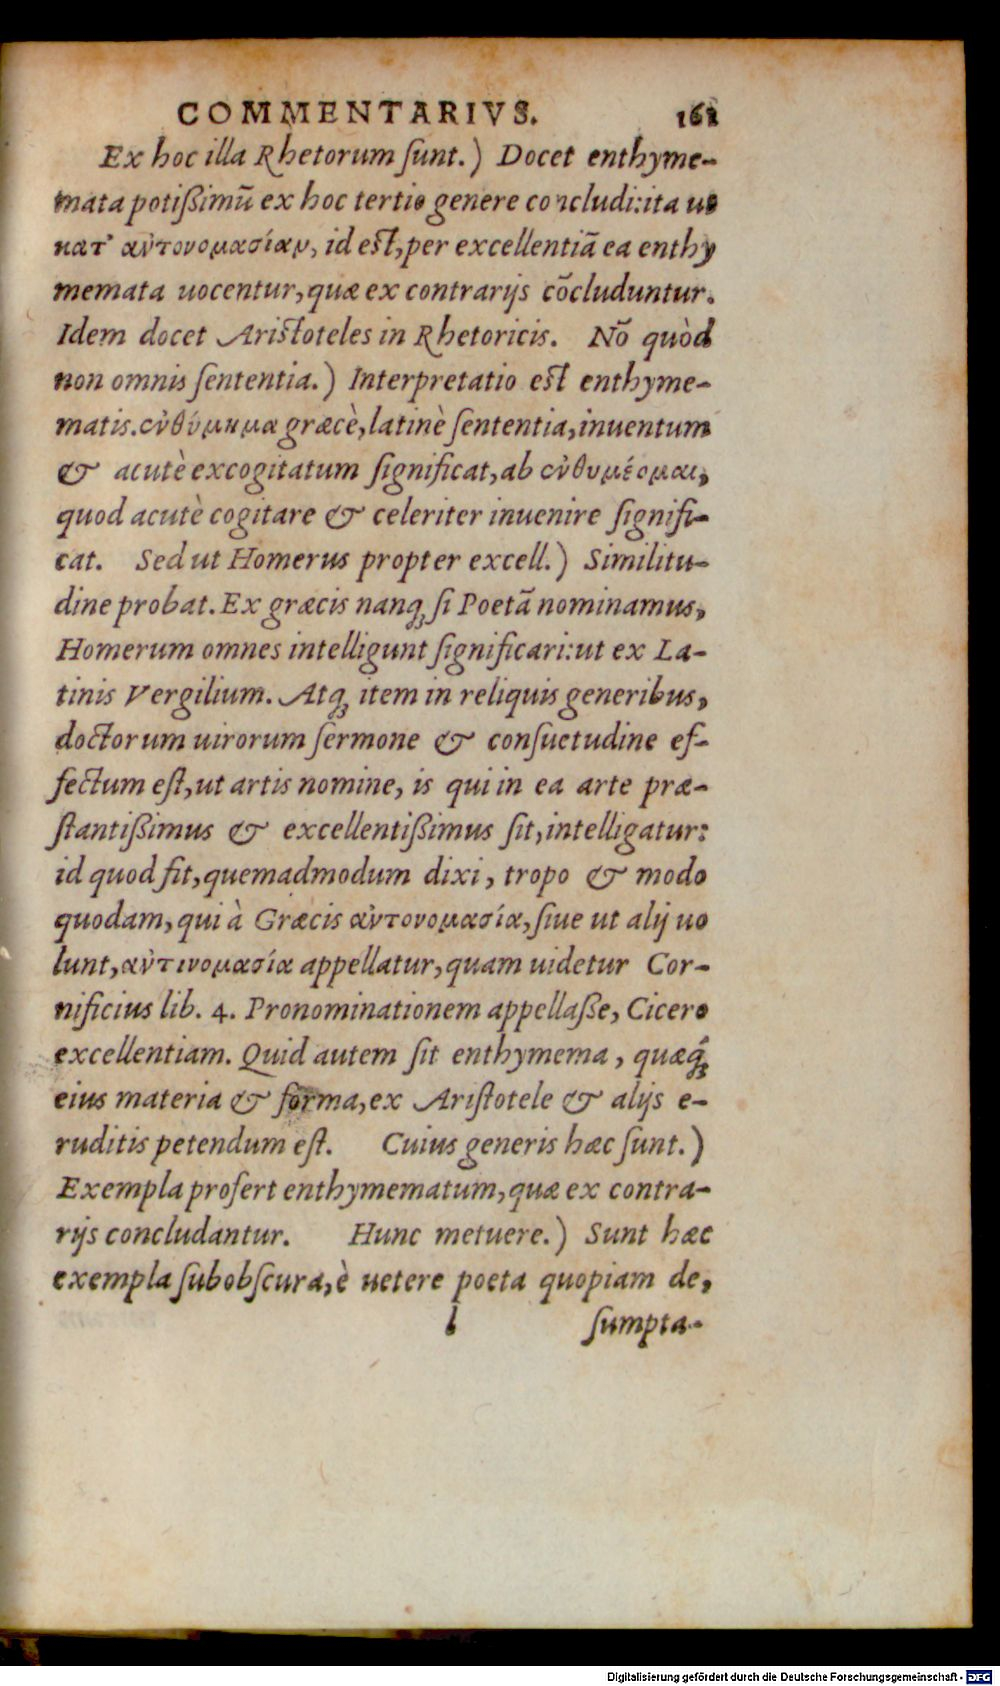 COMMENTARIVS. 161
Ex hoc illa Rhetorum ſunt.) Docet enthyme-
mata potißimũ ex hoc tertio genere concludi:ita ut
κατ᾽ αὐτονομασίαν, id est, per excellentiã ea enthy
memata uocentur, quæ ex contrarijs cõcluduntur.
Idem docet Aristoteles in Rhetoricis. Nõ quòd
non omnis ſententia.) Interpretatio est enthyme-
matis. ἐνθύμημα græcè, latinè ſententia, inuentum
& acutè excogitatum ſignificat, ab ἐνθυμέομαι,
quod acutè cogitare & celeriter inuenire ſignifi-
cat. Sed ut Homerus propter excell.) Similitu-
dine probat. Ex græcis nanq; ſi Poetã nominamus,
Homerum omnes intelligunt ſignificari:ut ex La-
tinis Vergilium. Atq; item in reliquis generibus,
doctorum uirorum ſermone & conſuetudine ef-
fectum eſt, ut artis nomine, is qui in ea arte præ-
ſtantißimus & excellentißimus ſit, intelligatur:
id quod fit, quemadmodum dixi, tropo & modo
quodam, qui à Græcis αὐτονομασία, ſiue ut alij uo
lunt, αὐτινομασία appellatur, quam uidetur Cor-
nificius lib. 4. Pronominationem appellaße, Cicero
excellentiam. Quid autem ſit enthymema, quæq́;
eius materia & forma, ex Ariſtotele & alijs e-
ruditis petendum eſt. Cuius generis hæc ſunt.)
Exempla profert enthymematum, quæ ex contra-
rijs concludantur. Hunc metuere.) Sunt hæc
exempla ſubobſcura, è uetere poeta quopiam de,
l ſumpta-
Digitalisierung gefördert durch die Deutsche Forschungsgemeinschaft - DFG